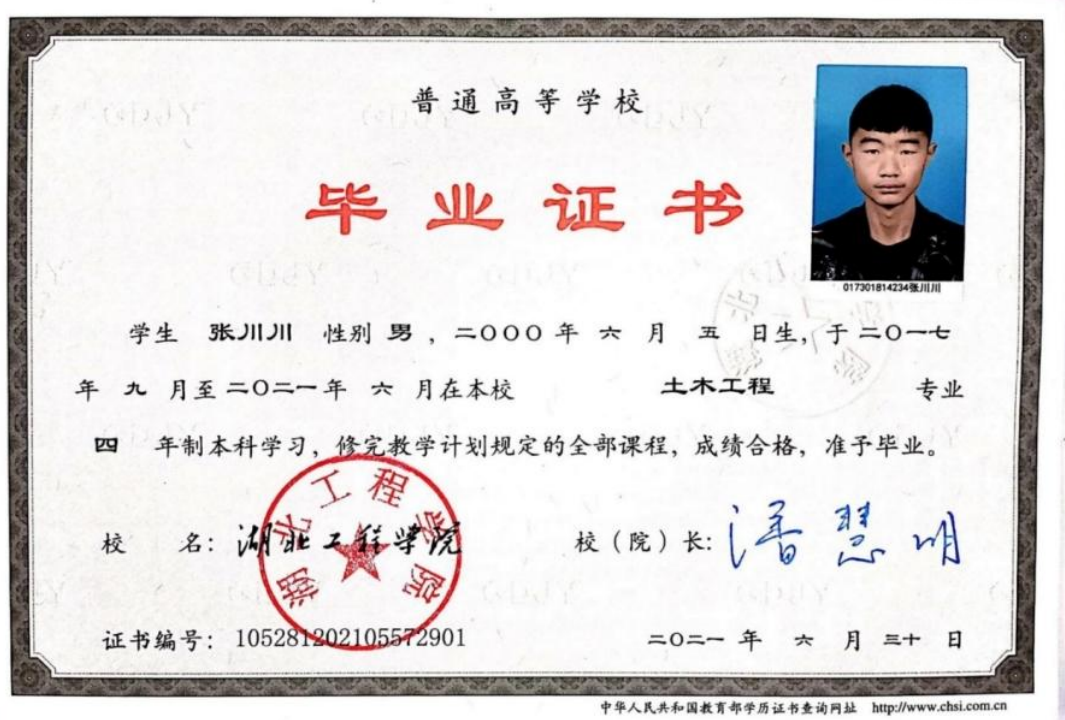 普通高等学校
毕业证书
017301814234张川川
学生 张川川 性别 男 ，二〇〇〇 年 六 月 五 日生，于二〇一七
年 九 月至二〇二一年 六 月在本校 土木工程 专业
四 年制本科学习，修完教学计划规定的全部课程，成绩合格，准予毕业。
湖北工程学院
校 名：湖北工程学院 校（院）长：潘慧明
证书编号：105281202105572901 二〇二一 年 六 月 三十 日
中华人民共和国教育部学历证书查询网址 http://www.chsi.com.cn